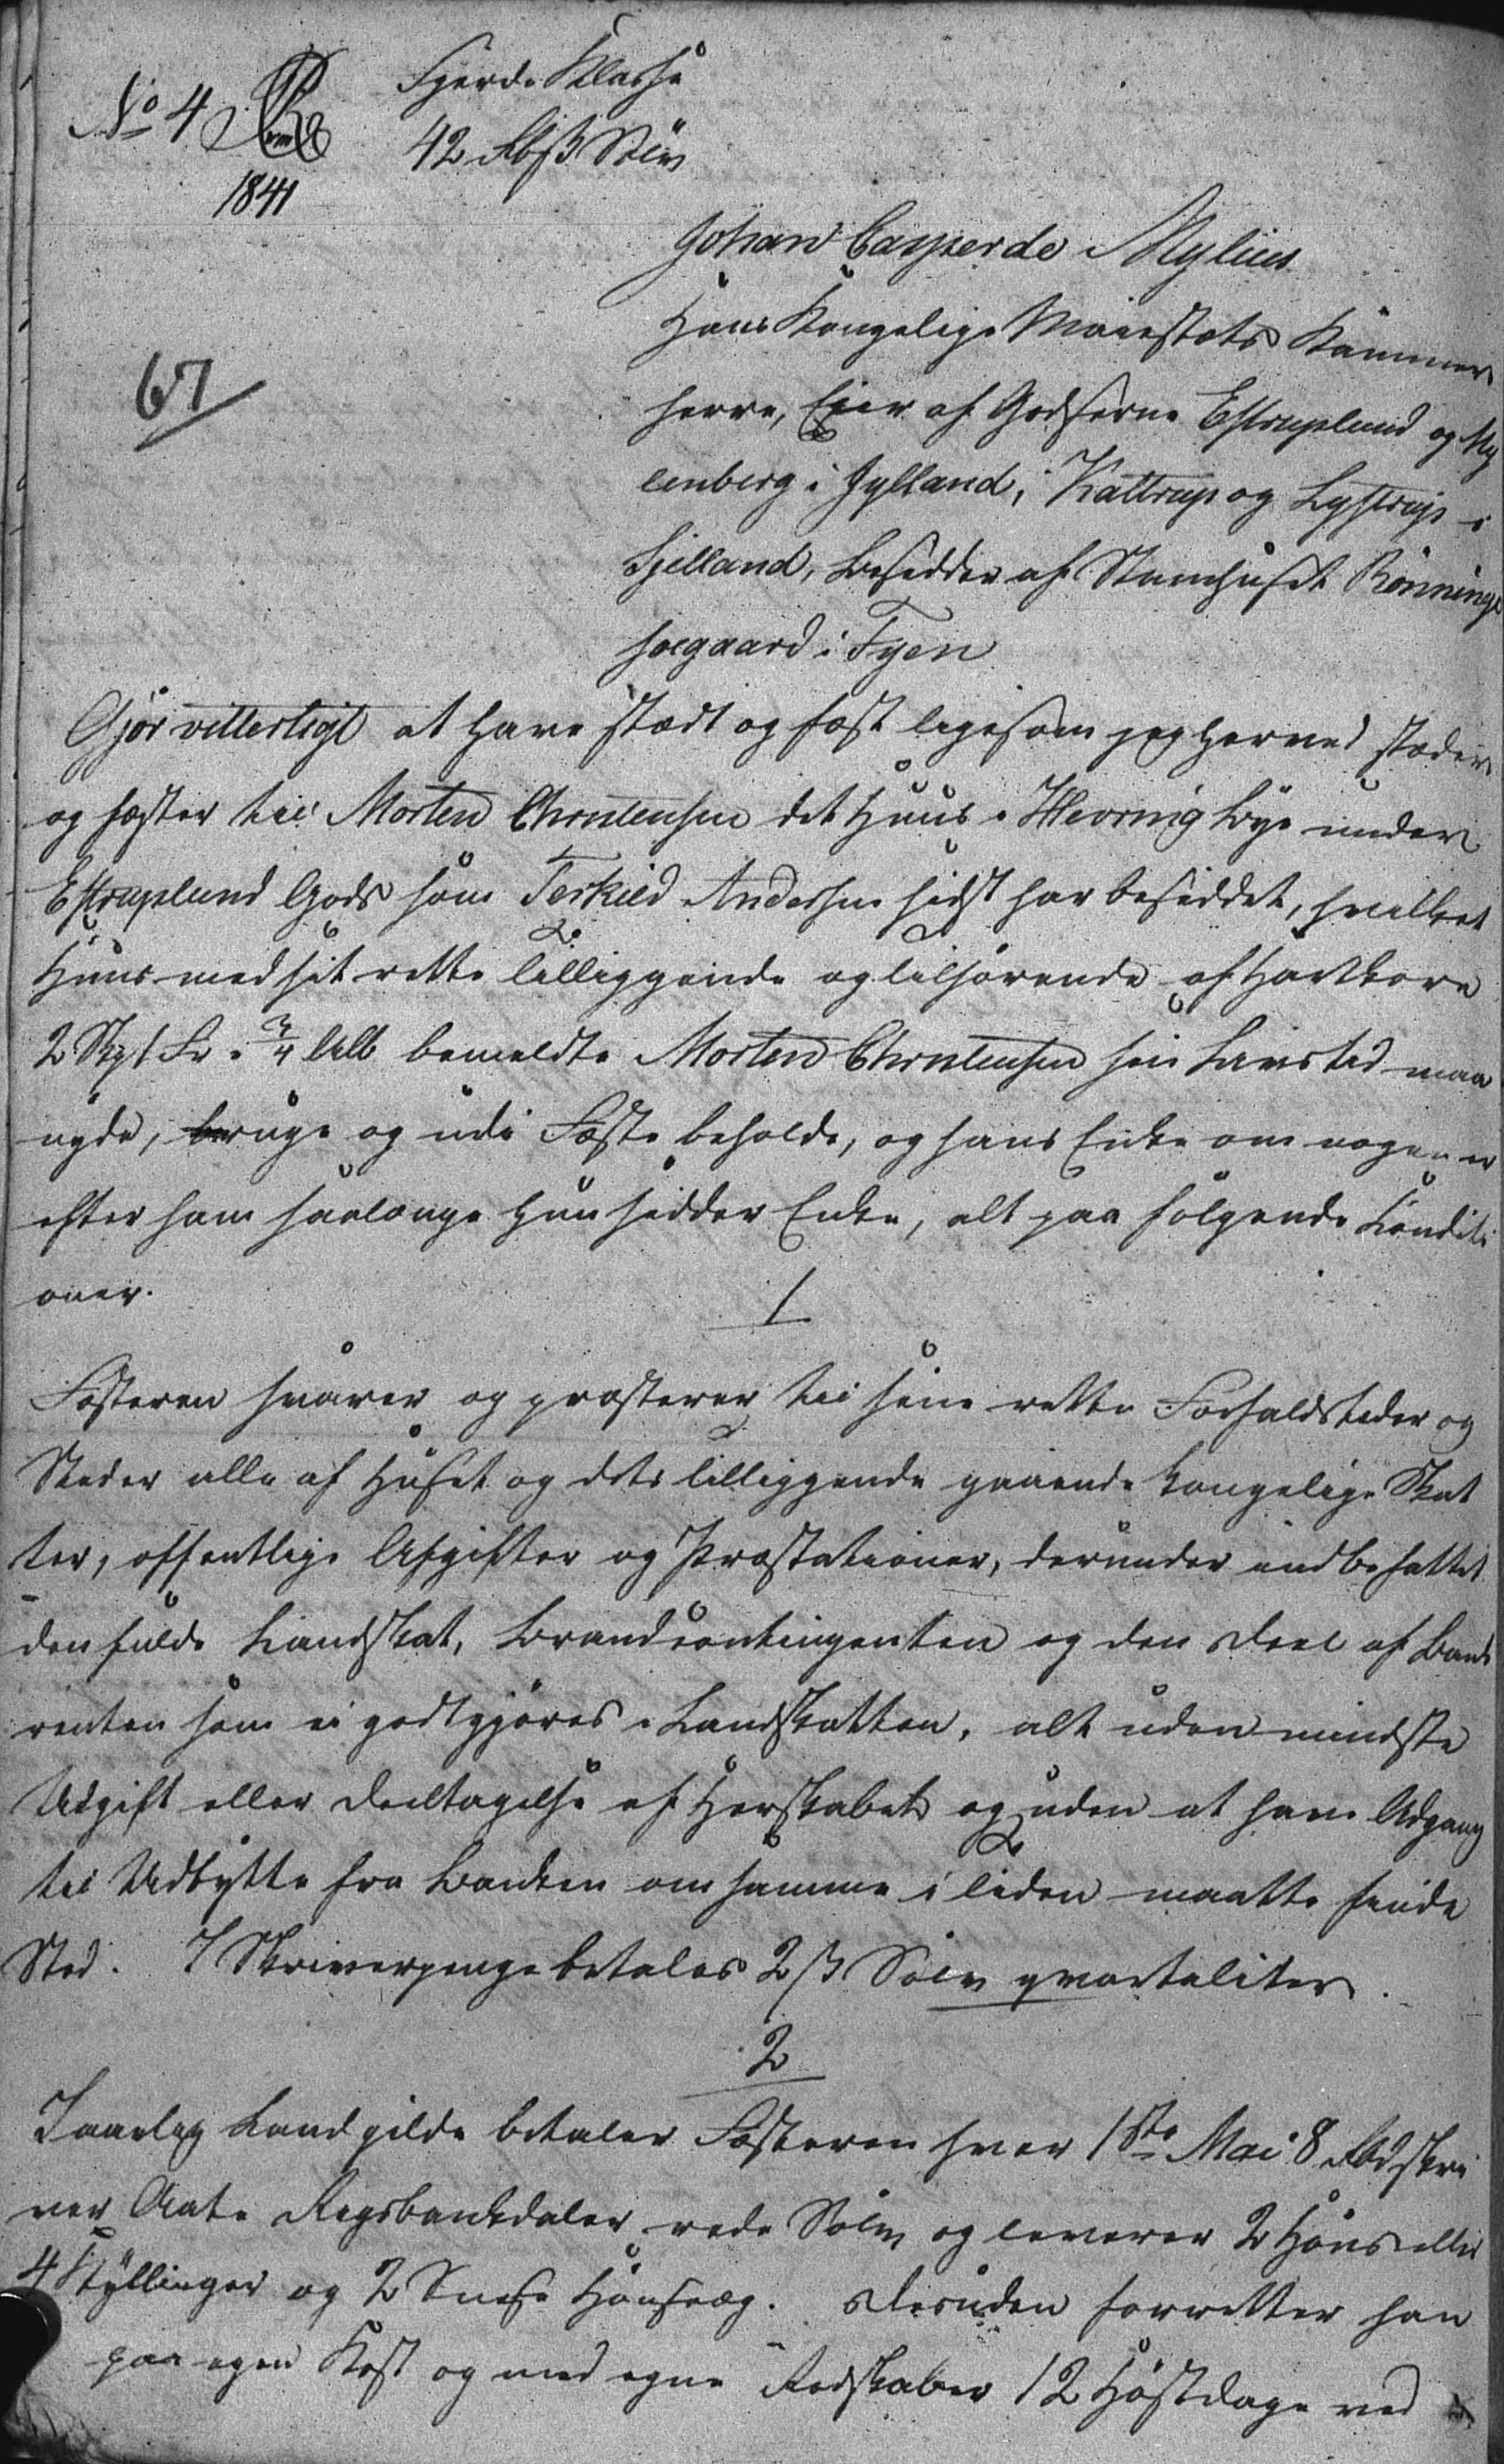 No 4
1841
Fjerde Klasse
42 Rbß Sølv
67
Johan Casper de Mylius
Hans Kongelige Maiestæts Kammer
herre, Eier af Godserne Estruplund og My
lenberg i Jylland, Kattrup og Lystrup i
Sjelland, Besidder af Stamhuset Rønninge
søegaard i Fyen
Gjør vitterligt at have stædt og fæst ligesom jeg herved stæder
og fæster til Morten Christensen det Huus i Hevring Bye under
Estruplund Gods som Terkild Andersen sidst har besiddet, hvilket
Huus med sit rette tilliggende og tilhørende af Hartkorn
2 Skp 1 Fr. 3/4 Alb bemeldte Morten Christensen sin Livstid maa
nyde, bruge og udi Fæste beholde, og hans Enke om nogen er
efter ham saalænge hun sidder Enke, alt paa følgende Conditi
oner.
1
Fæsteren svarer og præsterer til sine rette Forfaldstider og
Steder alle af Huset og dets tilliggende gaaende kongelige Skat
ter, offentlige Afgifter og Præstationer, derunder indbefattet
den fulde Landskat, Brandcontingenten og den Deel af Bank
renten som ei godtgjøres i Landskatten, alt uden mindste
Udgift eller Deeltagelse af Herskabet og uden at have Adgang
til Udbytte fra Banken om samme i tiden maatte finde
Sted. I Skriverpenge betales 2 ß Sølv qvartaliter.
2
I aarlig Landgilde betaler Fæsteren hver 1ste Mai 8 Rbd skri
ver Aate Rigsbankdaler rede Sølv og leverer 2 Høns eller
4 Kyllinger og 2 Snese Hønseæg. Desuden forretter han
paa egen Kost og med egne Redskaber 12 Høstdage ved